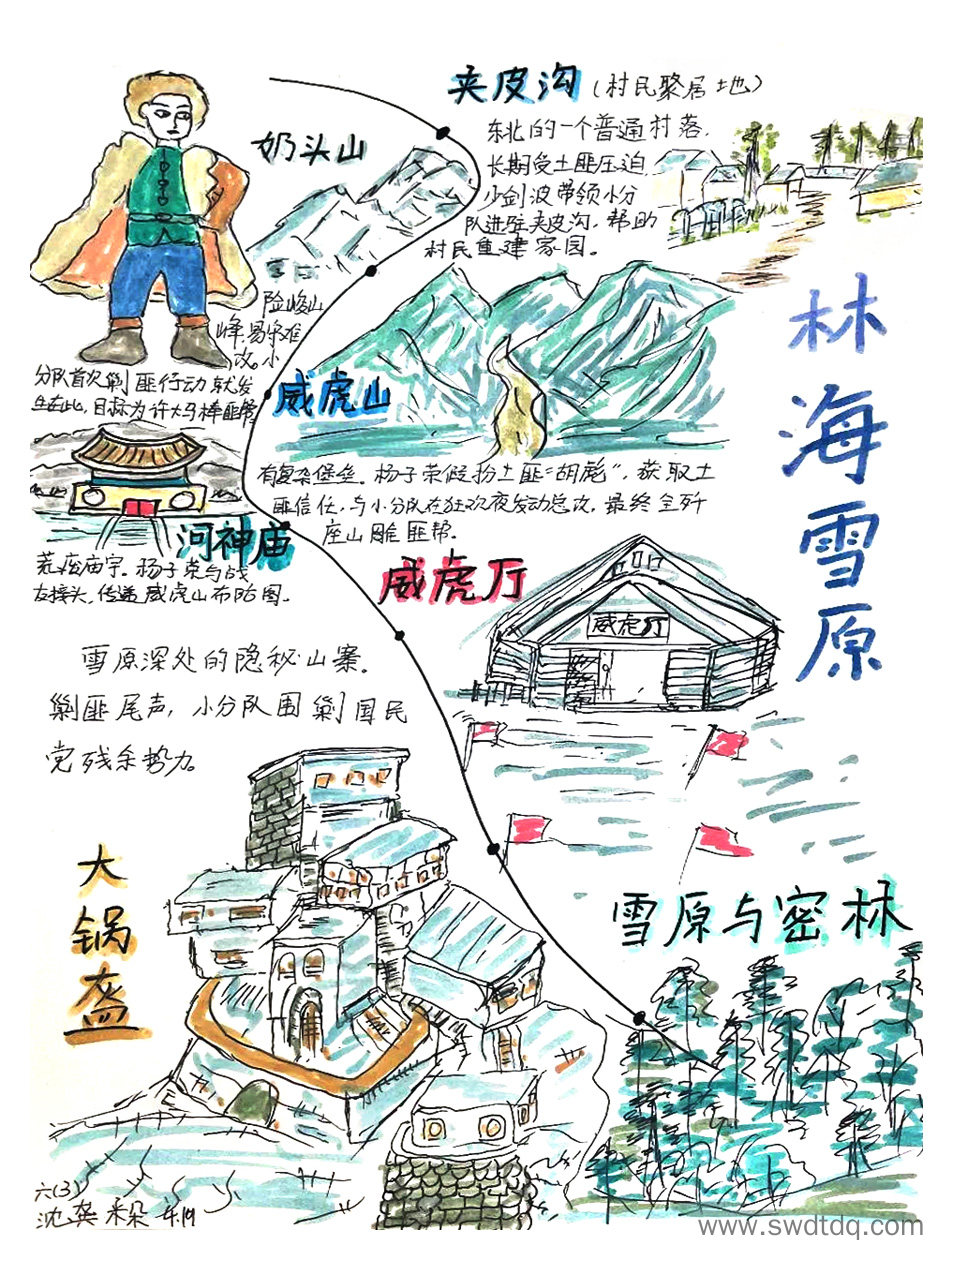 林海雪原
夹皮沟（村民聚居地）
东北的一个普通村落，
长期受土匪压迫
少剑波带领小分
队进驻夹皮沟，帮助
村民重建家园。
奶头山
险峻山
峰，易守难
攻。小
分队首次剿匪行动就发
生在此，目标为许大马棒匪帮
威虎山
有复杂堡垒。杨子荣假扮土匪“胡彪”，获取土
匪信任，与小分队在狂欢夜发动总攻，最终全歼
座山雕匪帮。
河神庙
荒废庙宇。杨子荣与战
友接头，传递威虎山布防图。
威虎厅
威虎厅
雪原深处的隐秘山寨。
剿匪尾声，小分队围剿国民
党残余势力。
大锅盔
雪原与密林
六(3)
沈龚
www.swdtdq.com